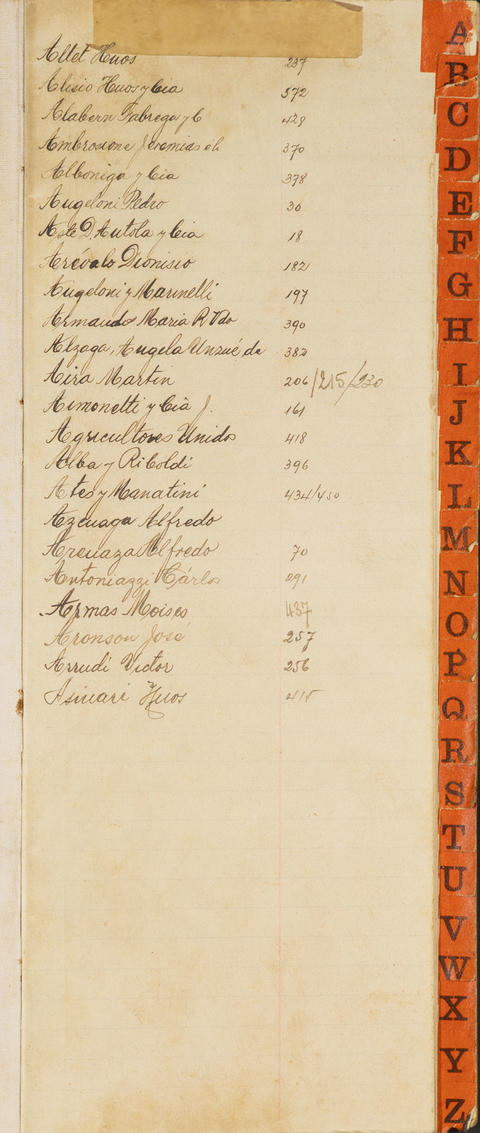 Altet Hnos 237
Alisio Hnos y Cia 572
Alabern Fabrega y C 428
Ambrosione Jeremias é h. 370
Alboniga y Cia 378
Angeloni Pedro 30
Aste D. Antola y Cia 18
Arévalo Dionisio 182
Angeloni y Marinelli 197
Armando Maria R Vda 390
Alzaga, Angela Unzué de 382
Aira Martin 206/215/230
Aimonetti y Cia J. 161
Agricultores Unidos 418
Alba y Riboldi 396
Ates y Manatini 434/450
Azcuaga Alfredo
Arenaza Alfredo 70
Antoniazzi Cárlos 291
Armas Moises 437
Aronson José 257
Arrudi Victor 256
Asinari Hnos 415
A
B
C
D
E
F
G
H
I
J
K
L
M
N
O
P
Q
R
S
T
U
V
W
X
Y
Z